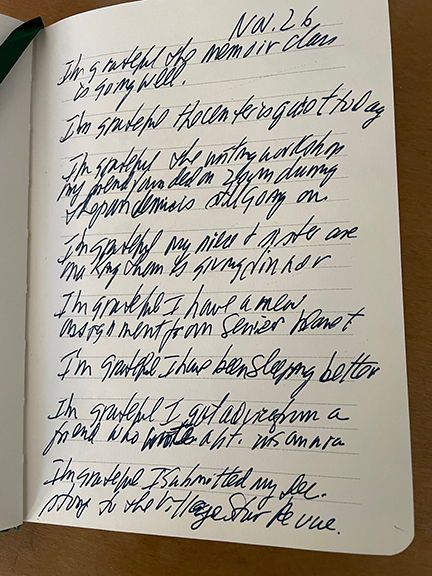 Nov. 26
I'm grateful the memoir class
is going well.
I'm grateful the center is quiet today
I'm grateful the writing workshop
my friend founded on zoom during
the pandemic is still going on.
I'm grateful my niece & sister are
making Thanksgiving dinner
I'm grateful I have a new
assignment from Senior Planet
I'm grateful I have been sleeping better
I'm grateful I got advice from a
friend who wrote abt. insomnia
I'm grateful I submitted my Dec.
story to the Village Star Revue.